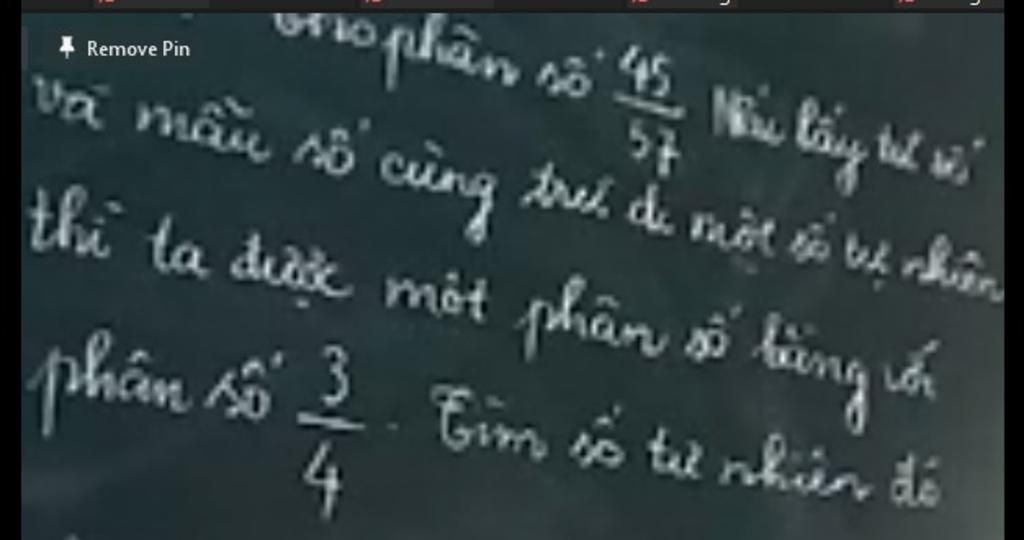 Remove Pin
Cho phân số 45/57 Nếu lấy tử số
và mẫu số cùng trừ đi một số tự nhiên
thì ta được một phân số bằng với
phân số 3/4. Tìm số tự nhiên đó